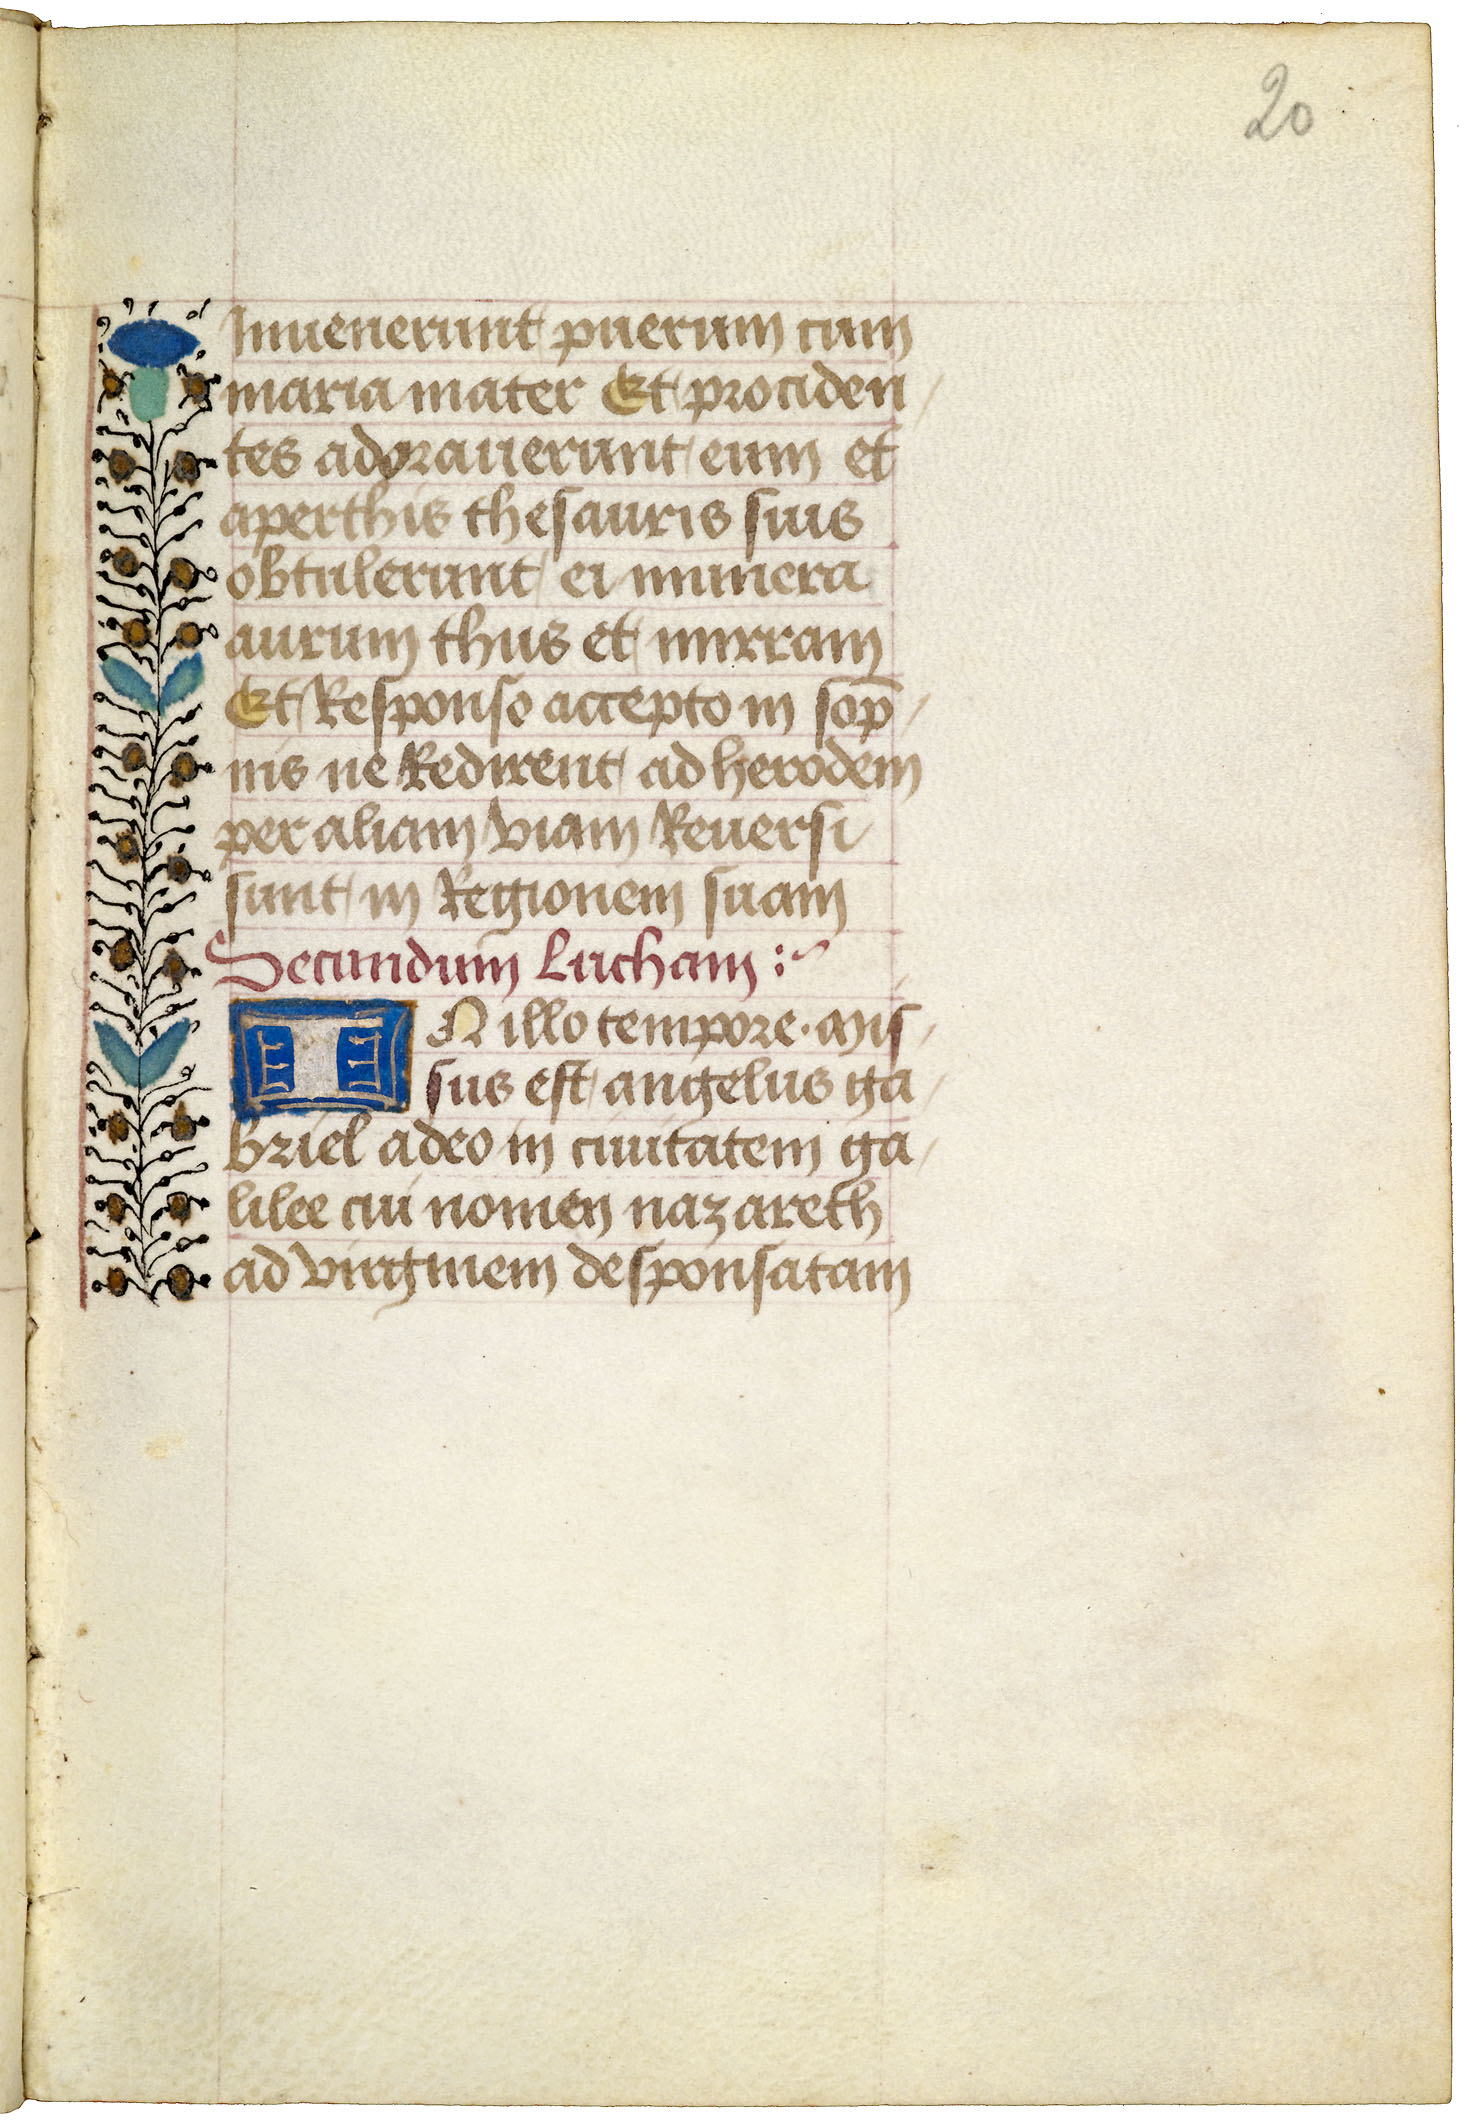 20
Inuenerunt puerum cum
maria mater Et prociden
tes adorauerunt eum et
aperthis thesauris suis
obtulerunt ei munera
aurum thus et mirram
Et Responso accepto in sop̄
nis ne Redirent ad herodem
per aliam viam Reuersi
sunt in Regionem suam
Secundum Lucham :~
IN illo tempore · mis
sus est angelus ga
briel adeo in ciuitatem ga
lilee cui nomen nazareth
ad virginem desponsatam